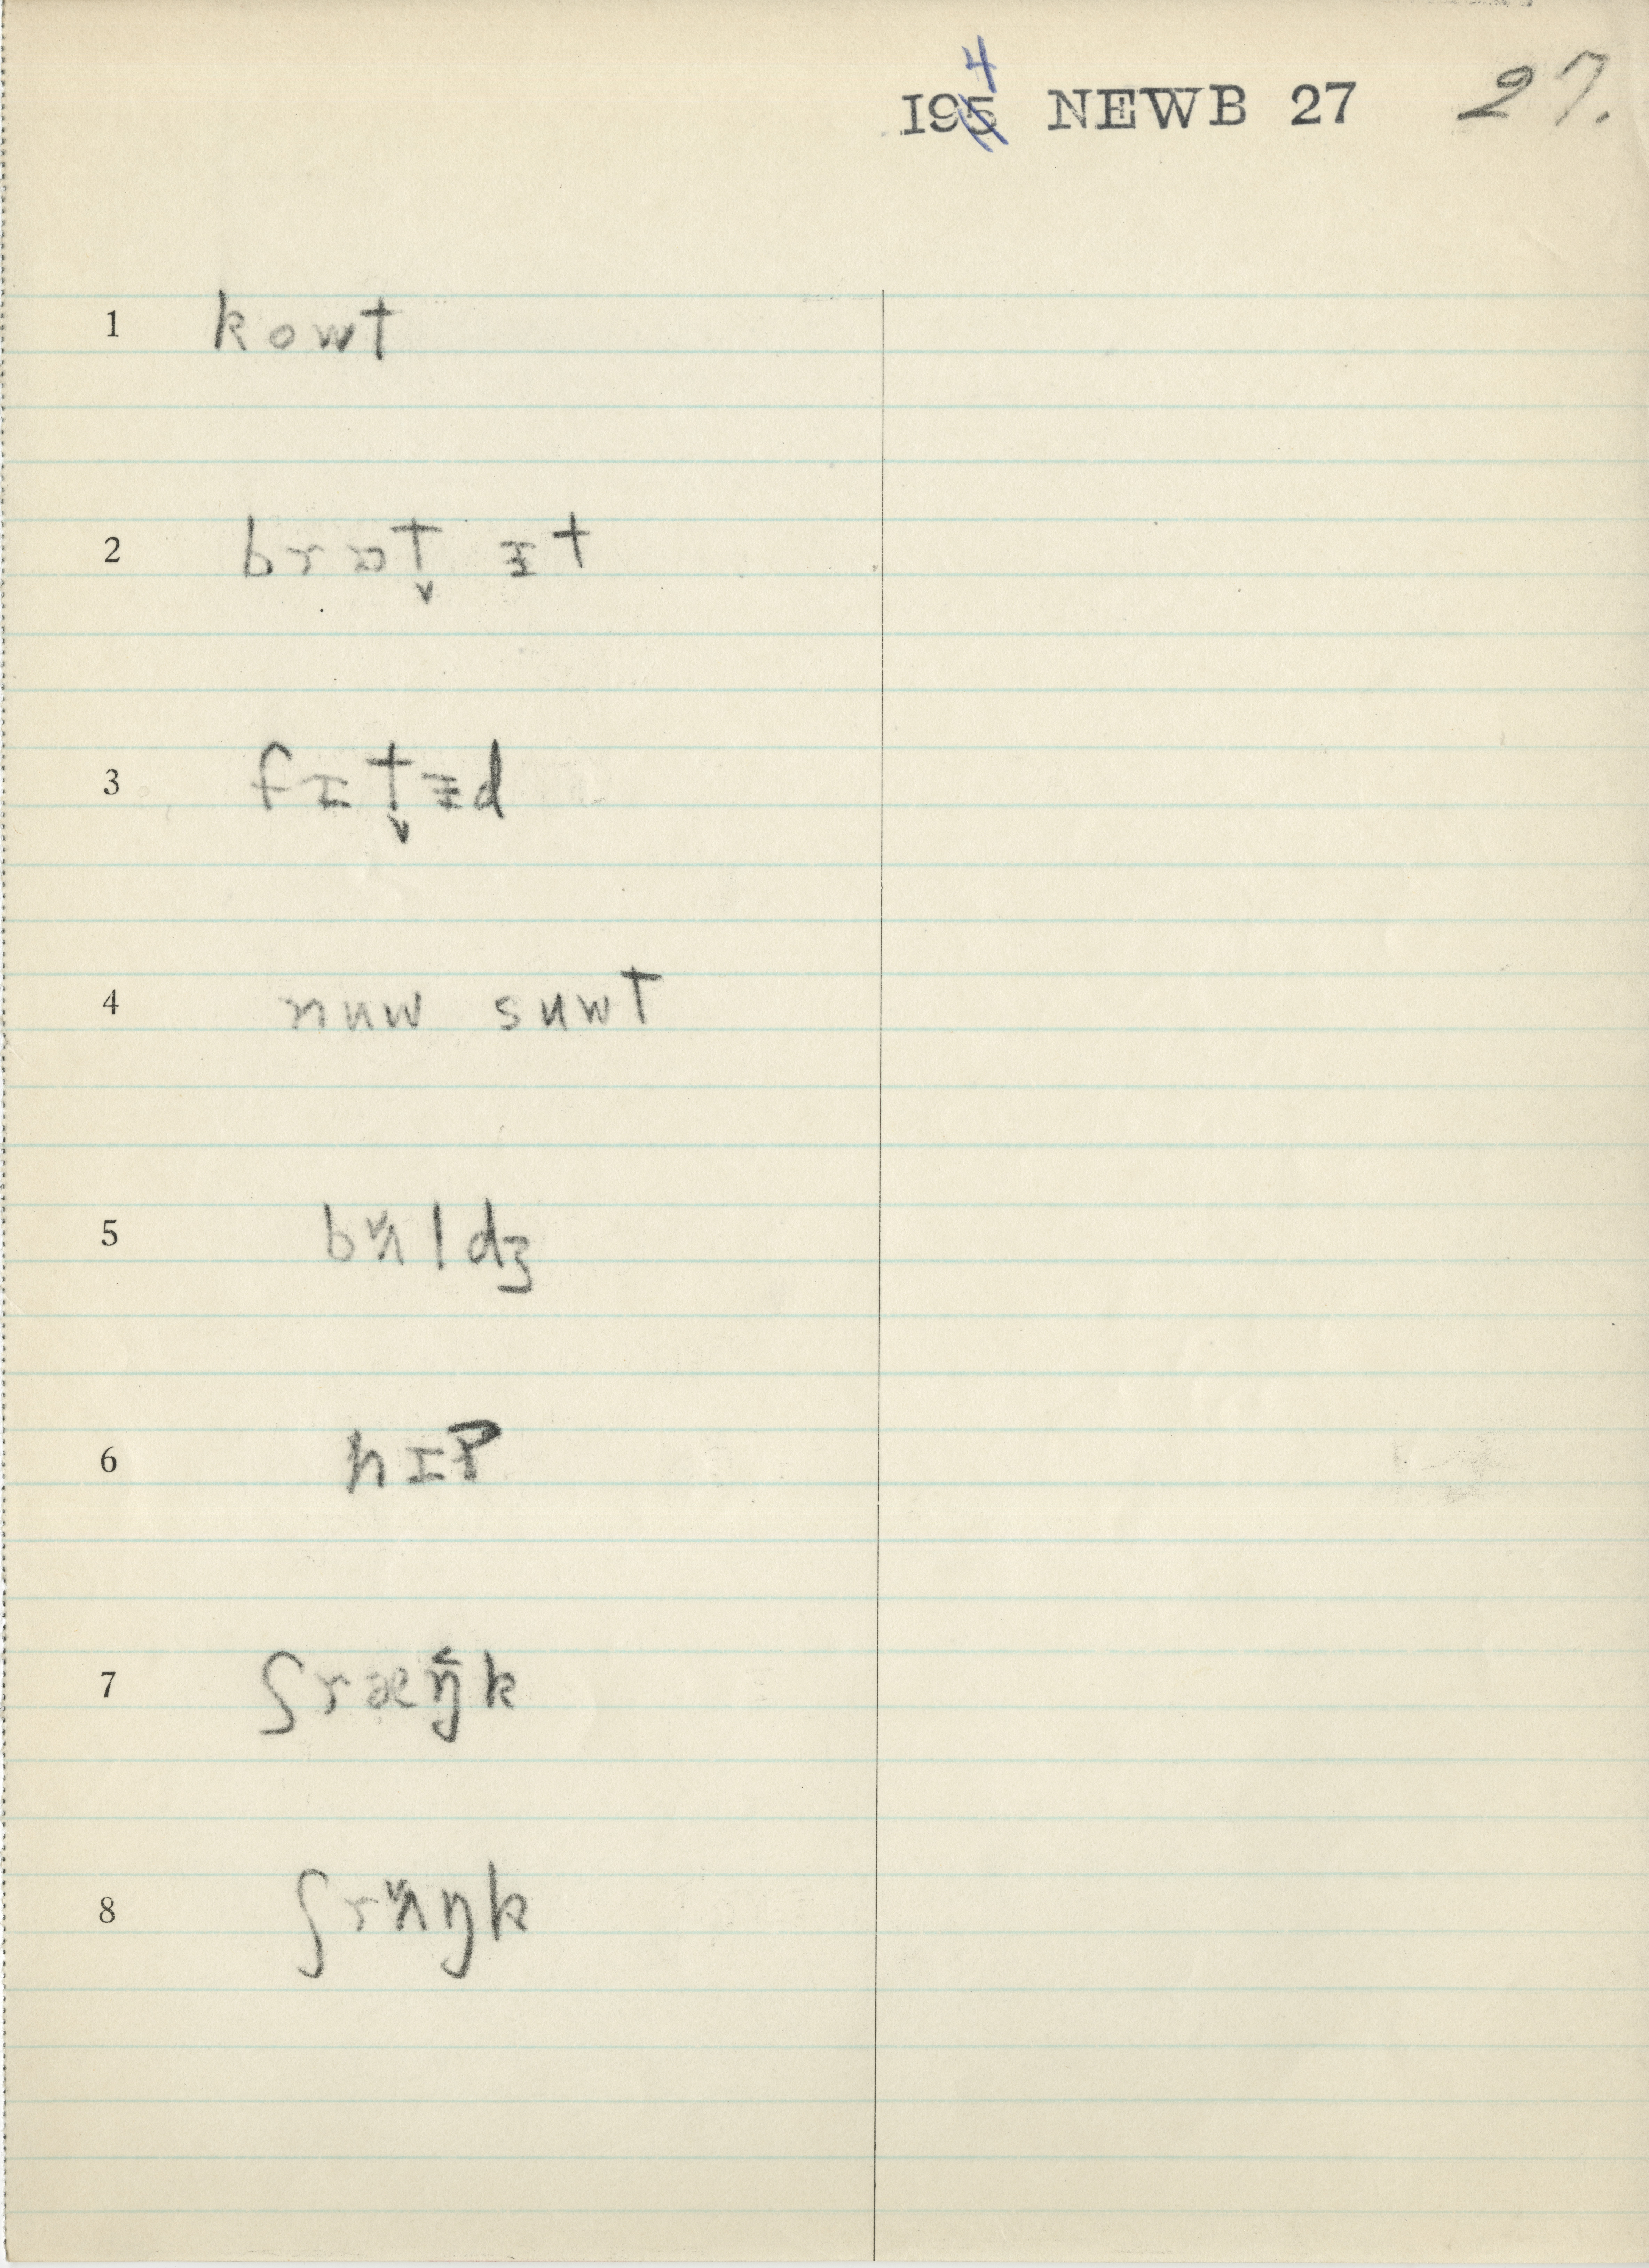 195 4 NEWB 27 27.
1 kowt
2 brɒt̬ ɪ̵t
3 fɪt̬ɪ̵d
4 nuw suwt
5 bʌ̌ldʒ
6 hɪp
7 ʃræŋ̌k
8 ʃrʌ̌ŋk